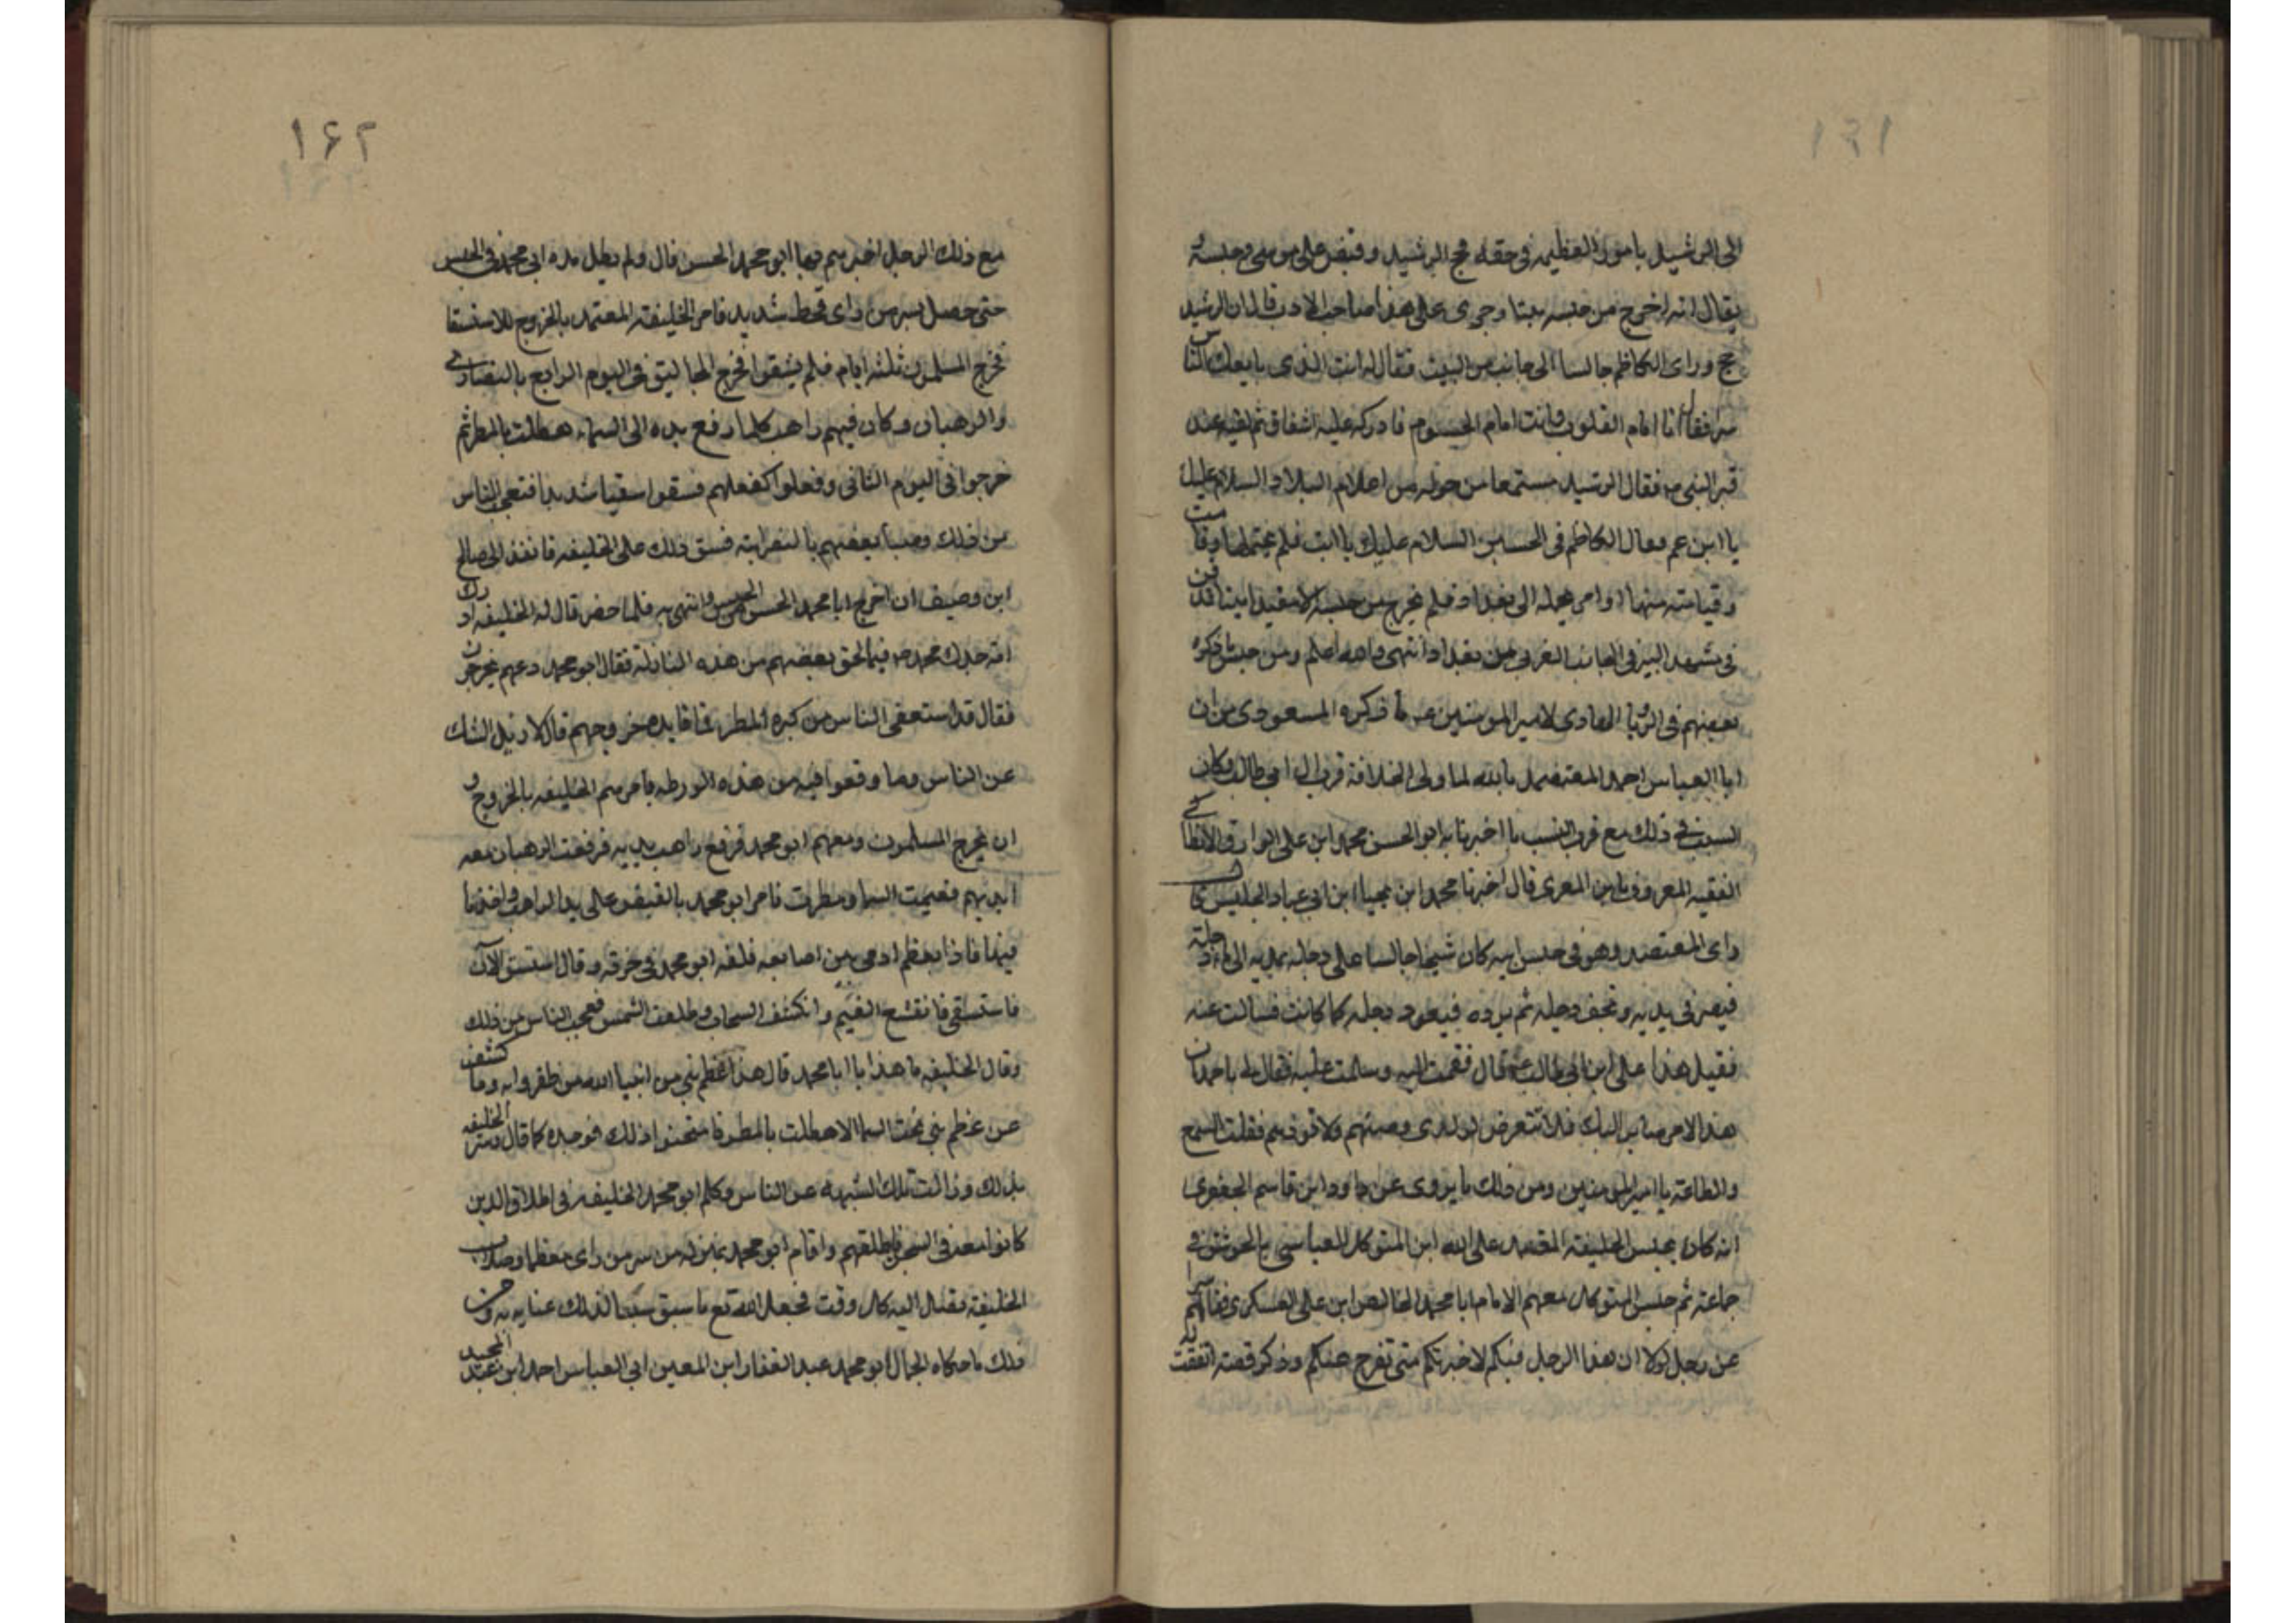 ١٦١
الى الرشيد بامور العظيمه فى حقه فحج الرشيد وقبض على موسى وحبسه و
يقال انه اخرج من حبسه ميتا وجرى على هذا صاحب الادب قال ان الرشيد
حج وراى الكاظم جالسا الى جانب من البيت فقال له انت الذى بايعك الناس
سرا فقال انا امام القلوب وانت امام الجسوم فادركه عليه اشفاق ثم لقيه عند
قبر النبى ص فقال الرشيد مستمعا من حوله من اعلام البلاد السلام عليك
يا ابن عم وقال الكاظم فى الحسابين السلام عليك يا ابت فلم يحتملها وقامت
وقيامته منها وامر بحمله الى بغداد فلم يخرج من حبسه الا مقيدا ميتا فدفن
فى مشهد البيز فى الجانب الغربى من بغداد انتهى والله اعلم ومن جنس ما ذكره
بعضهم فى الرؤيا العادى لامير المومنين عه ما ذكره المسعودى من ان
ابا العباس احمد المعتضد بالله لما ولى الخلافة قرب ال ابى طالب وكان
السبب فى ذلك مع قرب النسب ما اخبرنا به ابو الحسن محمد ابن على الوراق الانطاكى
الفقيه المعروف بابن المعرى قال اخبرنا محمد ابن يحيا ابن ابى عباد الجليس قال
راى المعتضد وهو فى حبس ابيه كان شيخا جالسا على دجله يمد يده الى ماء دجلة
فيصير فى يديه وتجف دجله ثم يرده فيعود دجله كما كانت فسالت عنه
فقيل هذا على ابن ابى طالب عه قال فقمت اليه وسلمت عليه فقال يا احمد ان
هذا الامر صاير اليك فلا تتعرض لولدى وصنهم ولا تؤذيهم فقلت السمع
والطاعة يا امير المومنين ومن ذلك ما يروى عن داود ابن قاسم الجعفرى
انه كان بحبس الخليفة المعتمد على الله ابن المتوكل العباسى بالجوشق فى
جماعة ثم حبس المتوكل معهم الامام ابا محمد الخالص ابن على العسكرى فسالهم
عن رجل لولا ان هذا الرجل فيكم لاخبرتكم متى تفرج عنكم وذكر قصة اتفقت له
١٦٢
مع ذلك الرجل اخبرهم فيها ابو محمد الحسن قال ولم يطل مده ابى محمد فى الحبس
حتى حصل بسر من راى قحط شديد فامر الخليفة المعتمد بالخروج للاستسقا
فخرج المسلمون ثلثه ايام فلم يسقوا فخرج الجاثليق فى اليوم الرابع بالنصارى
والرهبان وكان فيهم راهب كلما رفع يده الى السماء هطلت بالمطر ثم
خرجوا فى اليوم الثانى وفعلوا كفعلهم فسقوا سقيا شديدا فتعجب الناس
من ذلك وصبا بعضهم بالنصرانيه فشق ذلك على الخليفه فانفذ الى صالح
ابن وصيف ان اخرج ابا محمد الحسن من الحبس وانتهى به فلما حضر قال له الخليفه ادرك
امة جدك محمد ص فيما لحق بعضهم من هذه النازلة فقال ابو محمد دعهم يخرجون
فقال قد استعفى الناس من كثره المطر فما فايده خروجهم قال لازيل الشك
عن الناس وما وقعوا فيه من هذه الورطه فامرهم الخليفه بالخروج و
ان يخرج المسلمون ومعهم ابو محمد فرفع راهب يديه فرفعت الرهبان معه
ايديهم فغيمت السما ومطرت فامر ابو محمد بالقبض على يد الراهب واخذ ما
فيها فاذا بعظم ادمى بين اصابعه فلفه ابو محمد فى خرقه وقال استسق الآن
فاستسقى فانقشع الغيم وانكشف السحاب وطلعت الشمس فعجب الناس من ذلك
وقال الخليفه ما هذا يا ابا محمد قال هذا عظم نبى من انبيا الله من ظفروا به وما كشف
عن عظم نبى تحت السما الا هطلت بالمطر فامتحنوا ذلك فوجده كما قال فسر الخليفه
بذلك وزالت تلك الشبهه عن الناس وكلم ابو محمد الخليفه فى اطلاق الذين
كانوا معه فى السجن فاطلقهم واقام ابو محمد بمنزله من سر من راى معظما وصلات
الخليفة تصل اليه كل وقت فجعل الله تع ما سبق سببا لذلك عنايه به ومن
ذلك ما حكاه الجمال ابو محمد عبد الغفار ابن المعين ابى العباس احمد ابن عبد المجيد